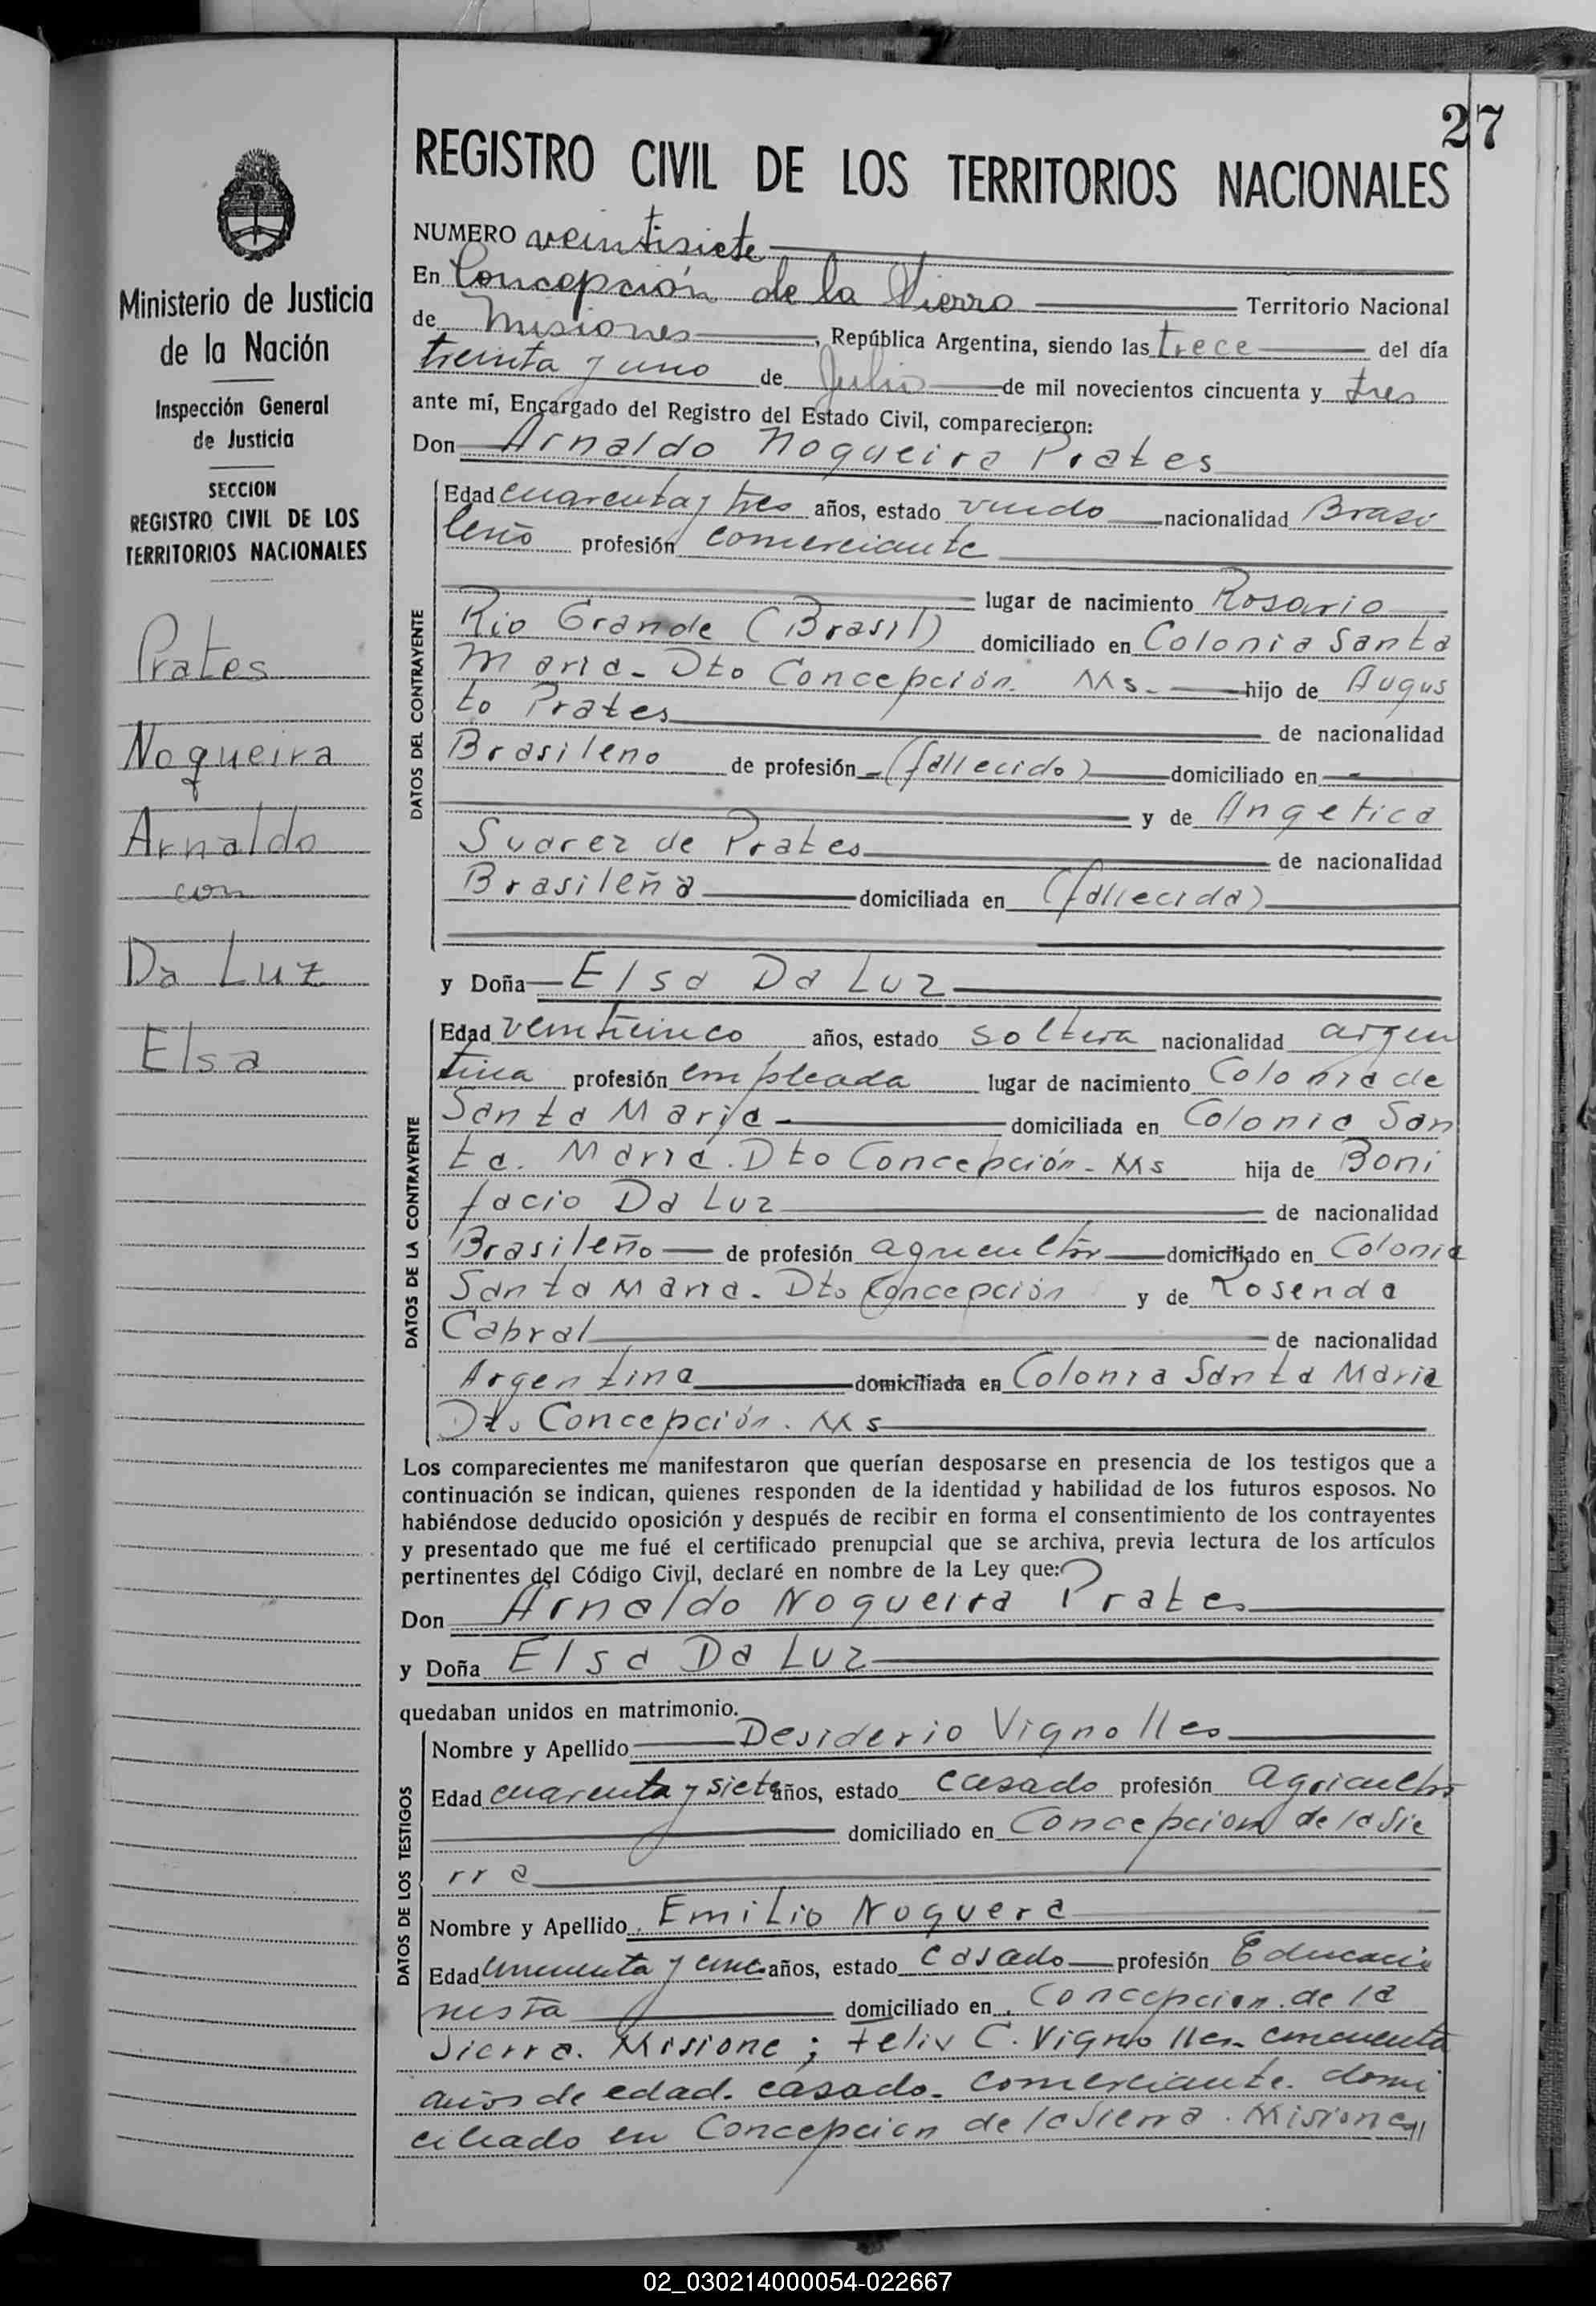 27
REGISTRO CIVIL DE LOS TERRITORIOS NACIONALES
Ministerio de Justicia
de la Nación
Inspección General
de Justicia
SECCION
REGISTRO CIVIL DE LOS
TERRITORIOS NACIONALES
Prates
Nogueira
Arnaldo
con
Da Luz
Elsa
NUMERO veintisiete
En Concepción de la Sierra Territorio Nacional
de Misiones, República Argentina, siendo las trece del día
treinta y uno de Julio de mil novecientos cincuenta y tres
ante mí, Encargado del Registro del Estado Civil, comparecieron:
Don Arnaldo Nogueira Prates
DATOS DEL CONTRAYENTE
Edad cuarenta y tres años, estado viudo nacionalidad Brasi
leño profesión comerciante
lugar de nacimiento Rosario
Rio Grande (Brasil) domiciliado en Colonia Santa
Maria - Dto Concepción. Ms. hijo de Augus
to Prates de nacionalidad
Brasileno de profesión (fallecido) domiciliado en -
y de Angelica
Suarez de Prates de nacionalidad
Brasileña domiciliada en (fallecida)
y Doña Elsa Da Luz
DATOS DE LA CONTRAYENTE
Edad veinticinco años, estado soltera nacionalidad argen
tina profesión empleada lugar de nacimiento Colonia de
Santa Maria - domiciliada en Colonia San
ta. Maria. Dto Concepción - Ms hija de Boni
facio Da Luz de nacionalidad
Brasileño de profesión agricultor domiciliado en Colonia
Santa Maria. Dto Concepción y de Rosenda
Cabral de nacionalidad
Argentina domiciliada en Colonia Santa Maria
Dto Concepción. Ms
Los comparecientes me manifestaron que querían desposarse en presencia de los testigos que a
continuación se indican, quienes responden de la identidad y habilidad de los futuros esposos. No
habiéndose deducido oposición y después de recibir en forma el consentimiento de los contrayentes
y presentado que me fué el certificado prenupcial que se archiva, previa lectura de los artículos
pertinentes del Código Civil, declaré en nombre de la Ley que:
Don Arnaldo Nogueira Prates
y Doña Elsa Da Luz
quedaban unidos en matrimonio.
DATOS DE LOS TESTIGOS
Nombre y Apellido Desiderio Vignolles
Edad cuarenta y siete años, estado casado profesión agricultor
domiciliado en Concepcion de la Sie
rra
Nombre y Apellido Emilio Noguera
Edad cincuenta y cinco años, estado casado profesión Educacio
nista domiciliado en Concepcion de la
Sierra. Misione ; Felix C. Vignolles cincuenta
años de edad. casado. comerciante. domi
ciliado en Concepcion de la Sierra. Misiones
02_030214000054-022667